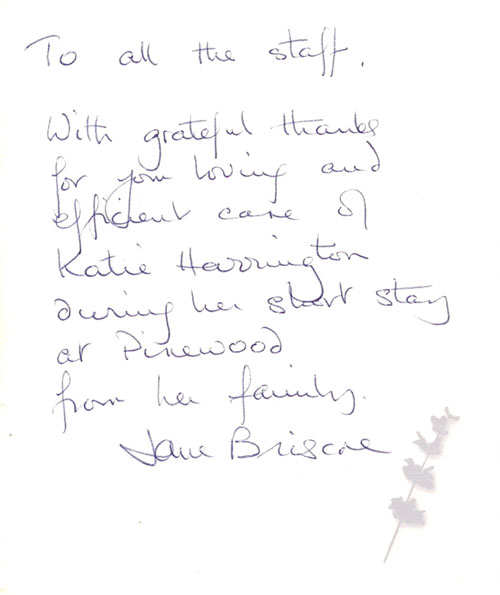 To all the staff.
With grateful thanks
for your loving and
efficient care of
Katie Harrington
during her short stay
at Pinewood
from her family.
Jane Briscoe